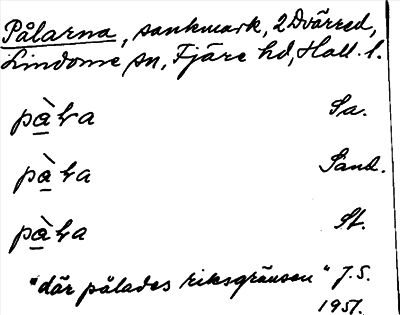 Pålarna, sankmark, 2 Dvärred,
Lindome sn, Fjäre hd, Hall. l.
pàɫa Sa.
pàɫa Sand.
pàɫa St.
"där pålades riksgränsen" J.S.
1951.